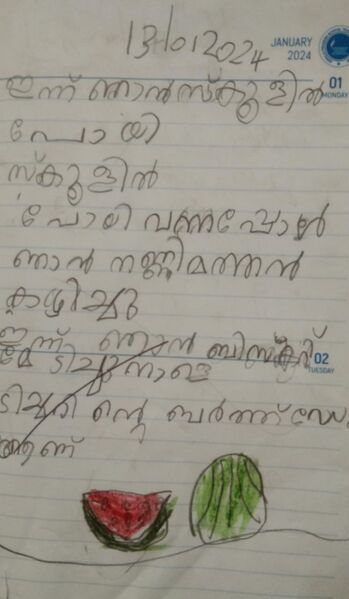 13/01/2024
JANUARY
2024
ഇന്ന് ഞാൻ സ്കൂളിൽ
01
MONDAY
പോയി
സ്കൂളിൽ
പോയി വന്നപ്പോൾ
ഞാൻ തണ്ണിമത്തൻ
കഴിച്ചു
ഇന്ന് ഞാൻ ബിസ്കറ്റ്
മേടിച്ചു നാളെ
02
TUESDAY
ടീച്ചറിന്റെ ബർത്ത്ഡേ
ആണ്